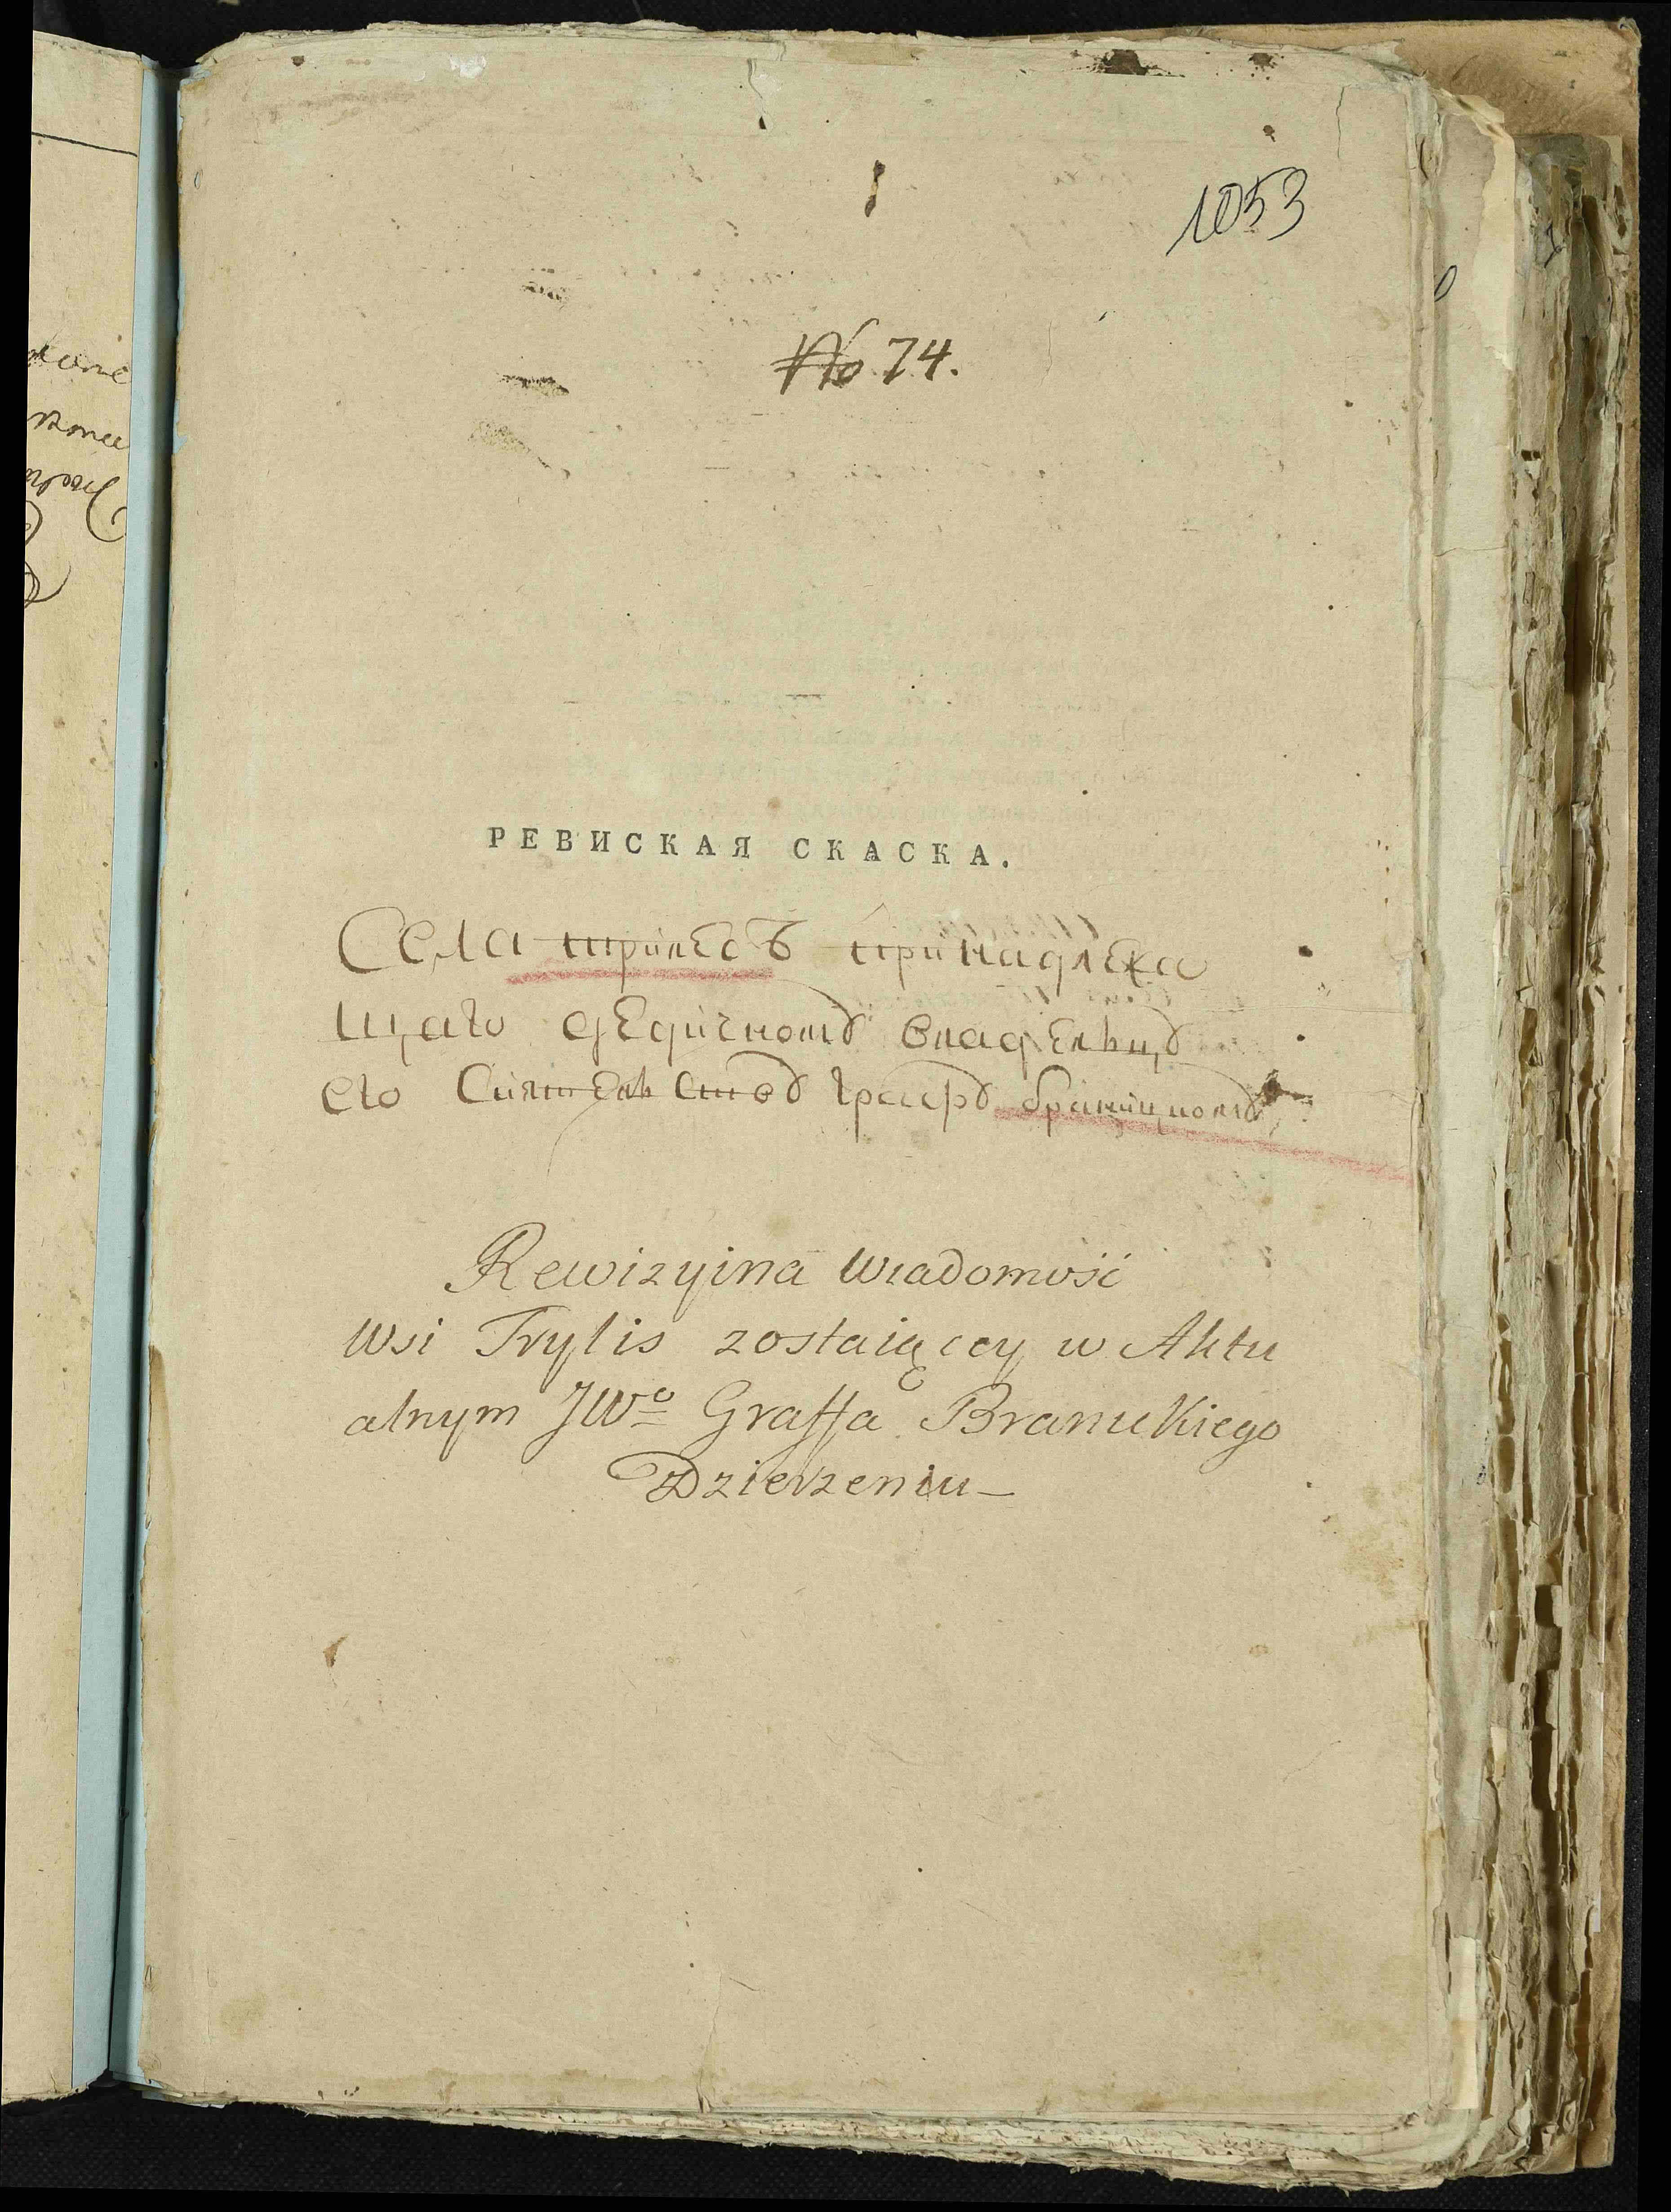 1053
No 74.
РЕВИСКАЯ СКАСКА.
Села трилесъ принадлежа
щаго дедичномъ владельцъ
его Сиятельствъ Графъ браницкомъ
Rewizyina Wiadomość
Wsi Trylis zostaiącey w Aktu
alnym JWo Graffa Branickiego
Dzierzeniu_